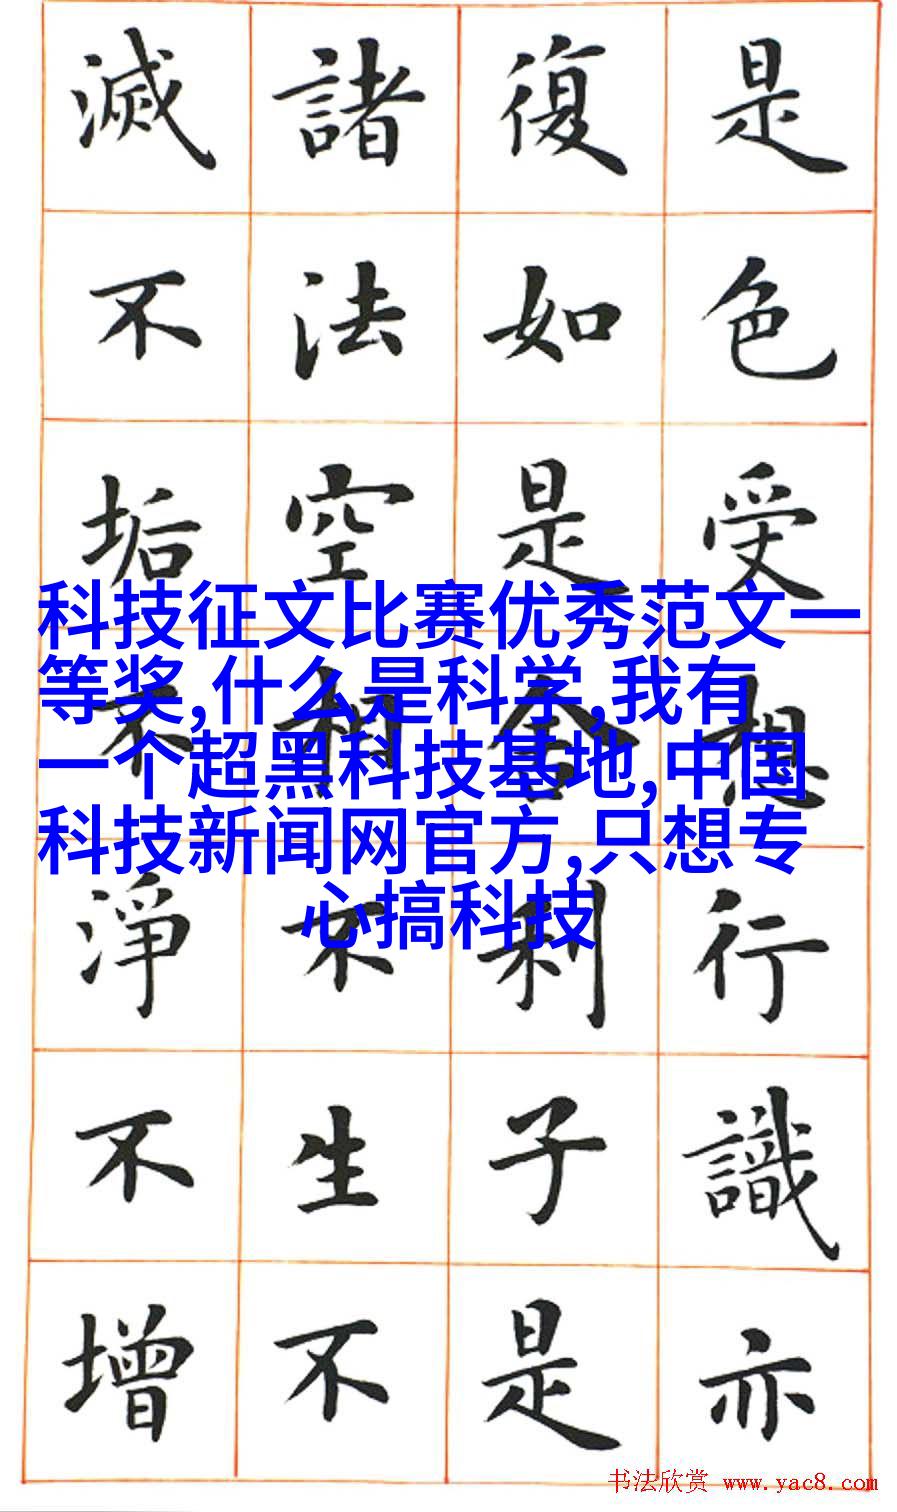 是色受想行識亦
復如是舍利子是
諸法空相不生不
滅不垢不淨不增
科技征文比赛优秀范文一
等奖,什么是科学,我有
一个超黑科技基地,中国
科技新闻网官方,只想专
心搞科技
书法欣赏 www.yac8.com